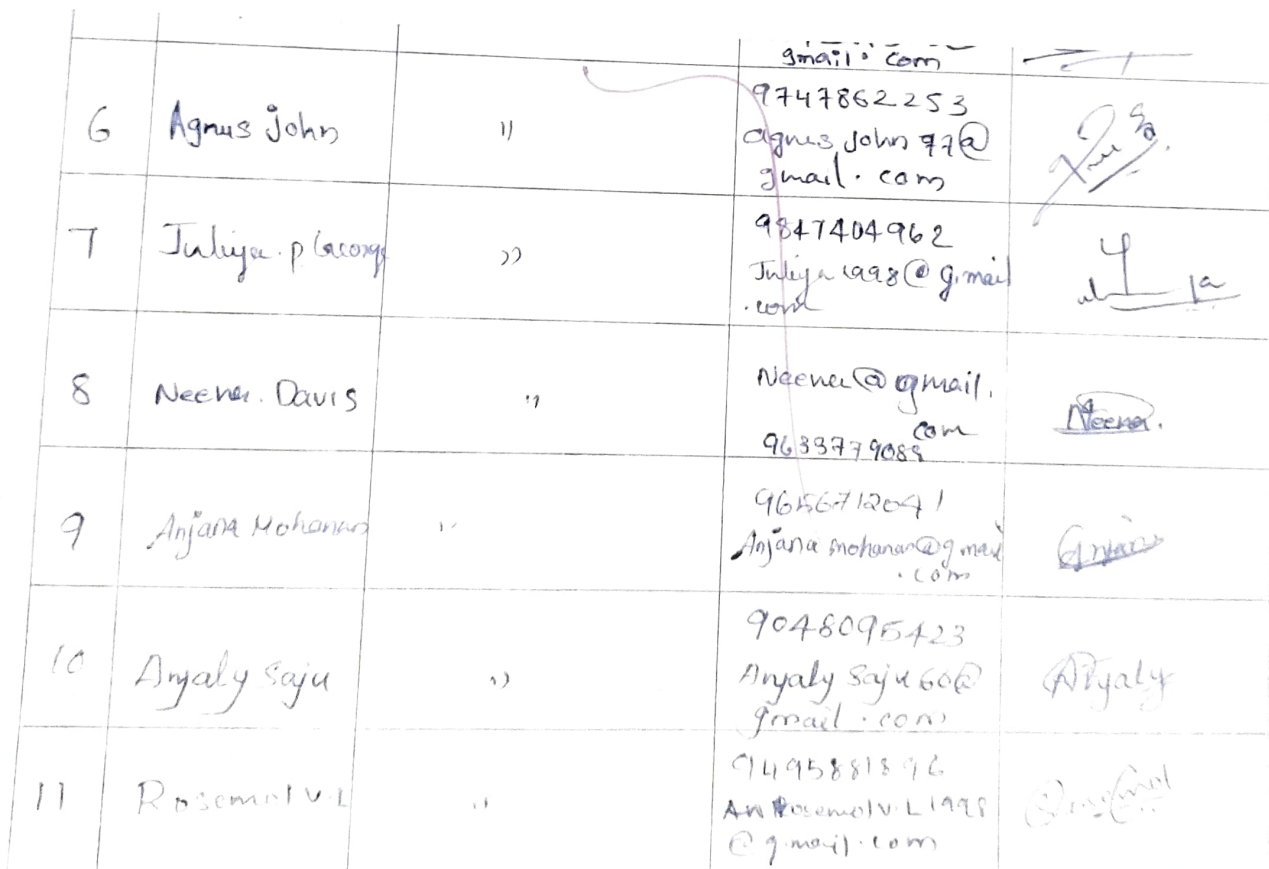 gmail. com
6 Agnus john " 9747862253
agnus john 97@
gmail. com
7 Juliya. p George " 9847404962
Juliya 1998@gmail
.com
8 Neena. Davis " Neena@gmail.
com
9633779088 Neena.
9 Anjana Mohanan " 9656712041
Anjana mohanan@gmail
.com
10 Anjaly Saju " 9048095423
Anjaly Saju 60@ Anjaly
gmail.com
11 Rosemol V.L " 9495881896
Rosemol V.L 1998 Rosemol
@gmail.com